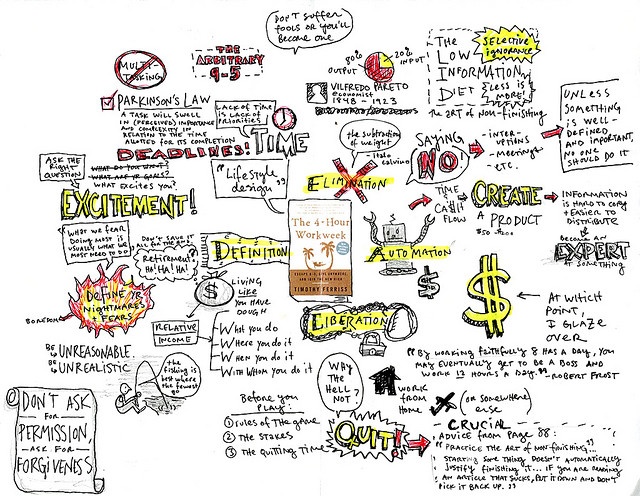 DON'T SUFFER
FOOLS OR YOU'LL
BECOME ONE
MULTI-
TASKING
THE
ARBITRARY
9-5
80%
OUTPUT
20%
INPUT
VILFREDO PARETO
economist
1848 - 1923
THE
LOW
INFORMATION
DIET
SELECTIVE
ignorance
LESS IS
MORE!
THE ART OF NON-FINISHING
PARKINSON'S LAW
A TASK WILL SWELL
IN (PERCEIVED) IMPORTANCE
AND COMPLEXITY IN
RELATION TO THE TIME
ALLOTTED FOR ITS COMPLETION
DEADLINES!
LACK OF TIME
IS LACK OF
PRIORITIES
TIME
the subtraction
of weight.
- Italo
Calvino
SAYING
NO!
- INTER-
UPTIONS
- MEETINGS
- ETC.
UNLESS
SOMETHING
IS WELL-
DEFINED
AND
IMPORTANT,
NO ONE
SHOULD DO IT
ASK THE
RIGHT
QUESTION
WHAT DO YOU WANT?
WHAT ARE YR GOALS?
WHAT EXCITES YOU?
EXCITEMENT!
"Lifestyle
design"
ELIMINATION
TIME
CA$H
FLOW
CREATE
A
PRODUCT
INFORMATION
IS HARD TO COPY
+ EASIER TO
DISTRIBUTE
BECOME AN
EXPERT
AT SOMETHING
The 4-Hour
Workweek
TIMOTHY FERRISS
WHAT WE FEAR
DOING MOST IS
USUALLY WHAT WE
MOST NEED TO DO
DON'T SAVE IT
ALL FOR THE END
Retirement?
HA! HA! HA!
DEFINITION
AUTOMATION
Define YR
NIGHTMARES
+ FEARS
BOREDOM
$
LIVING
LIKE
YOU HAVE
DOUGH
$
$
AT WHICH
POINT,
I GLAZE
OVER
RELATIVE
INCOME
WHAT YOU DO
WHERE YOU DO IT
WHEN YOU DO IT
WITH WHOM YOU DO IT
LIBERATION
BE UNREASONABLE.
BE UNREALISTIC
the
fishing is
best where
the fewest
go
"BY WORKING FAITHFULLY 8 HRS A DAY, YOU
MAY EVENTUALLY GET TO BE A BOSS AND
WORK 12 HOURS A DAY." - ROBERT FROST
WHY
THE
HELL
NOT?
WORK
FROM
HOME
(OR SOMEWHERE
ELSE)
DON'T ASK
FOR
PERMISSION,
ASK FOR
FORGIVENESS
Before you
PLAY:
① RULES OF THE GAME
② THE STAKES
③ THE QUITTING TIME
QUIT!
CRUCIAL
ADVICE FROM PAGE 88:
"PRACTICE THE ART OF NON-FINISHING...
STARTING SOMETHING DOESN'T AUTOMATICALLY
JUSTIFY FINISHING IT... IF YOU ARE READING
AN ARTICLE THAT SUCKS, PUT IT DOWN AND DON'T
PICK IT BACK UP."